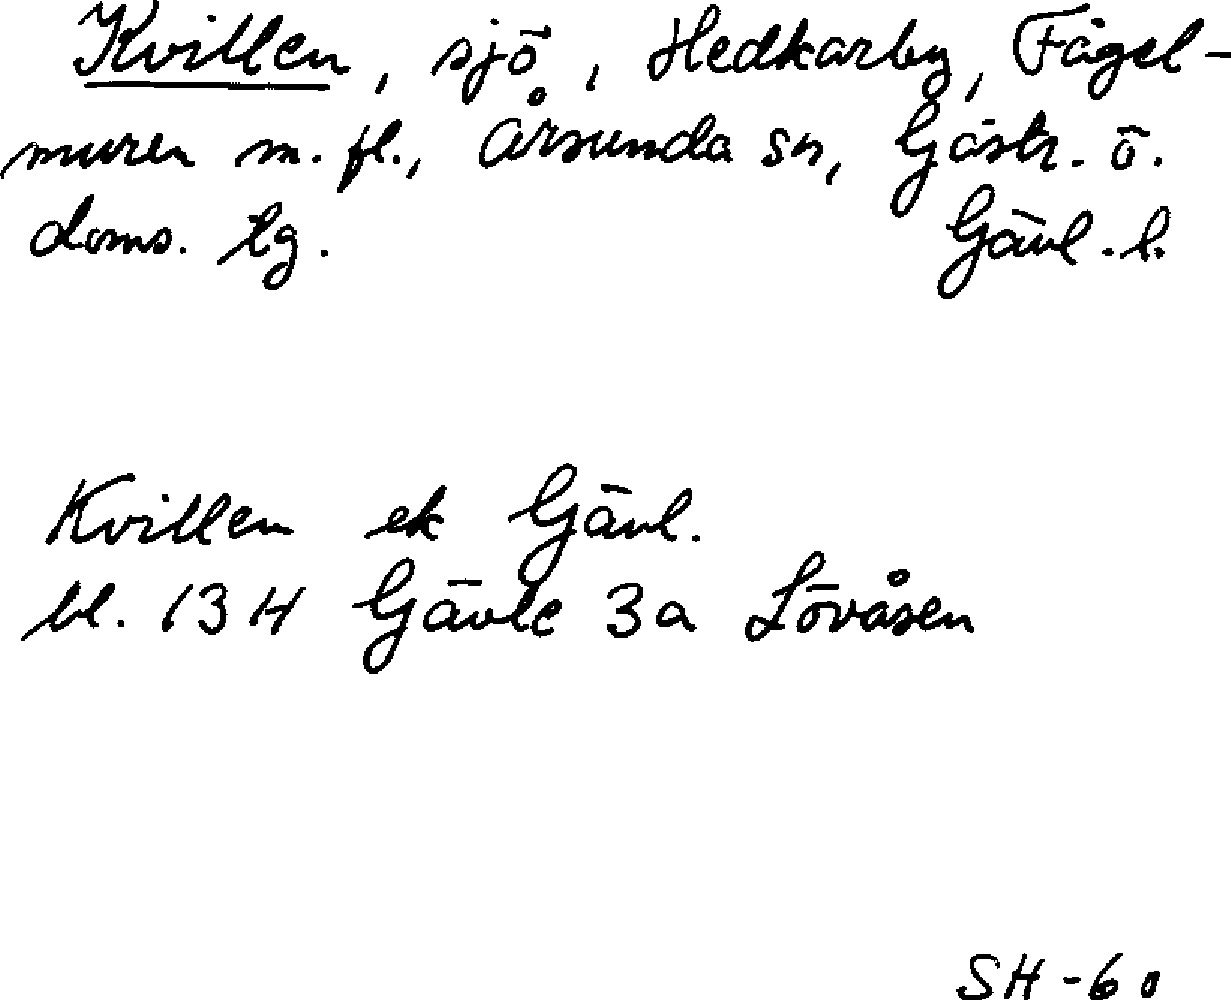 Kvillen, sjö, Hedkarby, Fågel-
muren m. fl., Årsunda sn, Gästr. ö.
doms. tg. Gävl. l.
Kvillen ek Gävl.
bl. 13 H Gävle 3a Lövåsen
SH-60